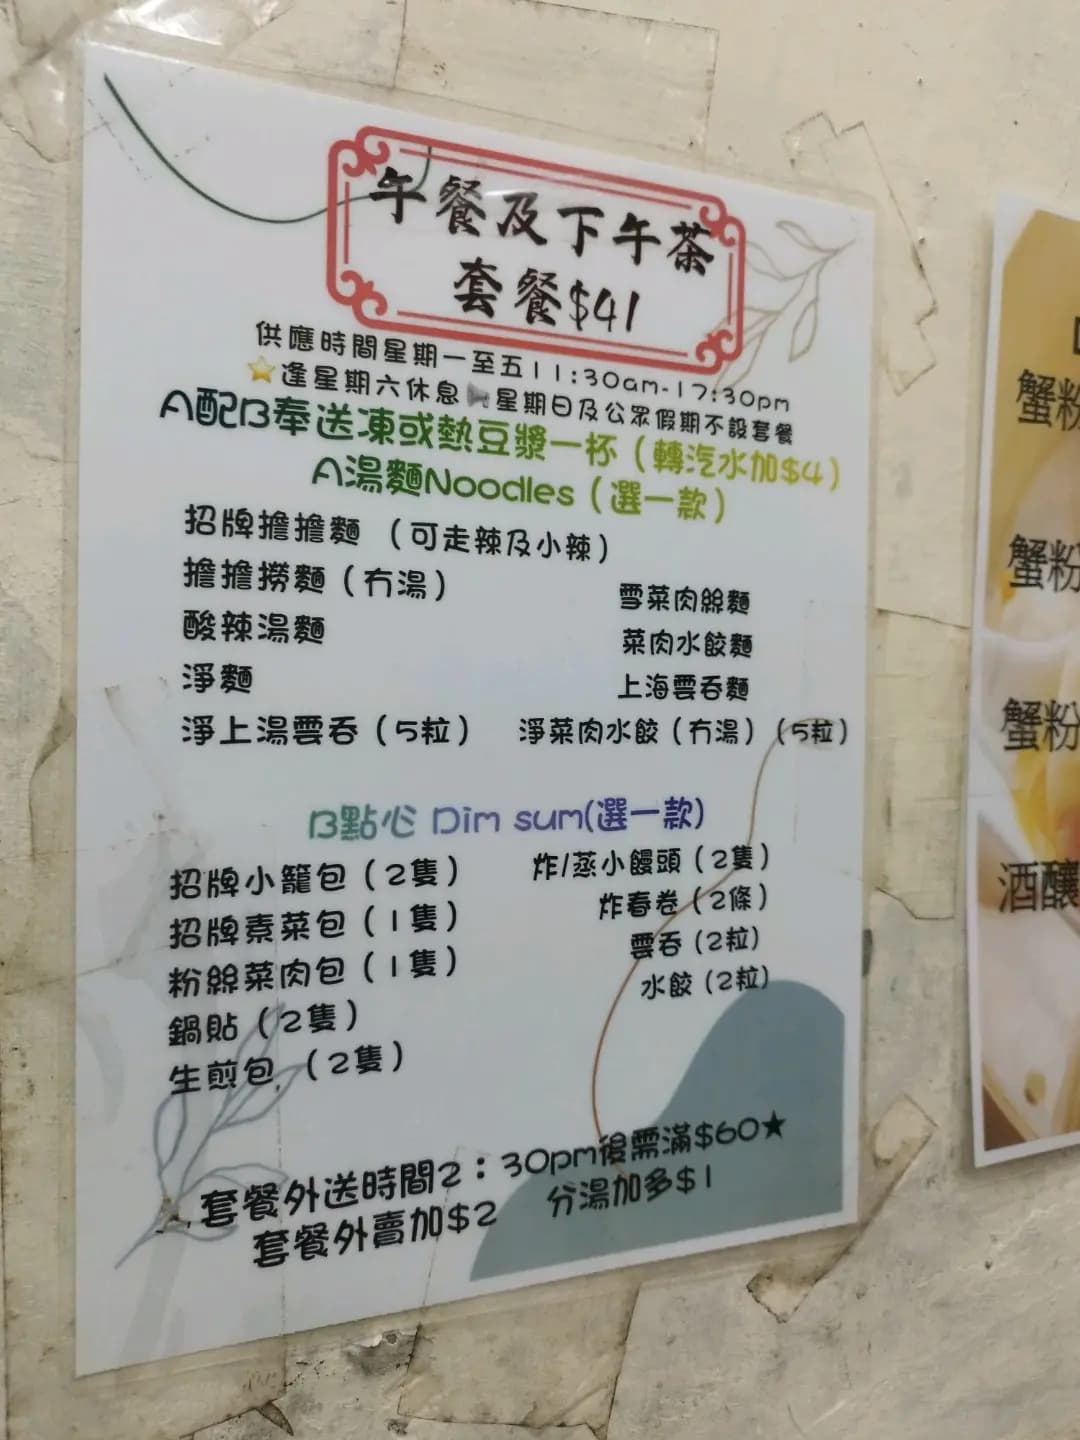 午餐及下午茶
套餐$41
供應時間星期一至五11:30am-17:30pm
⭐逢星期六休息 星期日及公眾假期不設套餐
A配B奉送凍或熱豆漿一杯（轉汽水加$4）
A湯麵Noodles（選一款）
招牌擔擔麵 （可走辣及小辣）
擔擔撈麵（冇湯）
雪菜肉絲麵
酸辣湯麵
菜肉水餃麵
淨麵
上海雲吞麵
淨上湯雲吞（5粒）
淨菜肉水餃（冇湯）（5粒）
B點心 Dim sum(選一款)
招牌小籠包（2隻）
炸/蒸小饅頭（2隻）
招牌素菜包（1隻）
炸春卷（2條）
粉絲菜肉包（1隻）
雲吞（2粒）
鍋貼（2隻）
水餃（2粒）
生煎包（2隻）
套餐外送時間2：30pm後需滿$60★
套餐外賣加$2 分湯加多$1
蟹粉
蟹粉
蟹粉
酒釀